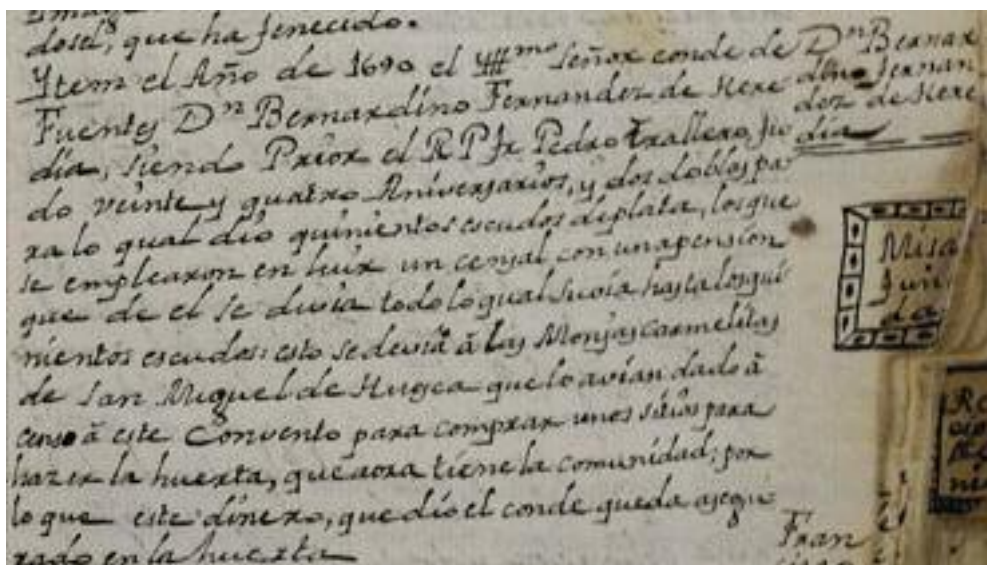 dosel, que ha fenecido.
Ytem el Año de 1690 el Yll^mo Señor conde de
Fuentes D^n Bernardino Fernandez de Here
dia, siendo Prior el R P fr Pedro trallero, fu
do veinte y quatro Aniversarios, y dos doblos pa
ra lo qual dió quinientos escudos de plata, los que
se emplearon en luir un censal con una pension
que de el se divia todo lo qual suvia hasta los qui
nientos escudos: esto se devia á las Monjas Carmelitas
de San Miguel de Huesca que lo avian dado á
censo á este Convento para comprar unos sitios para
hazer la huerta, que aora tiene la comunidad; por
lo que este dinero, que dió el conde queda asegu
rado en la huerta
D^n Bernar
dino fernan
dez de Here
dia
Misa
fun
da
Fran